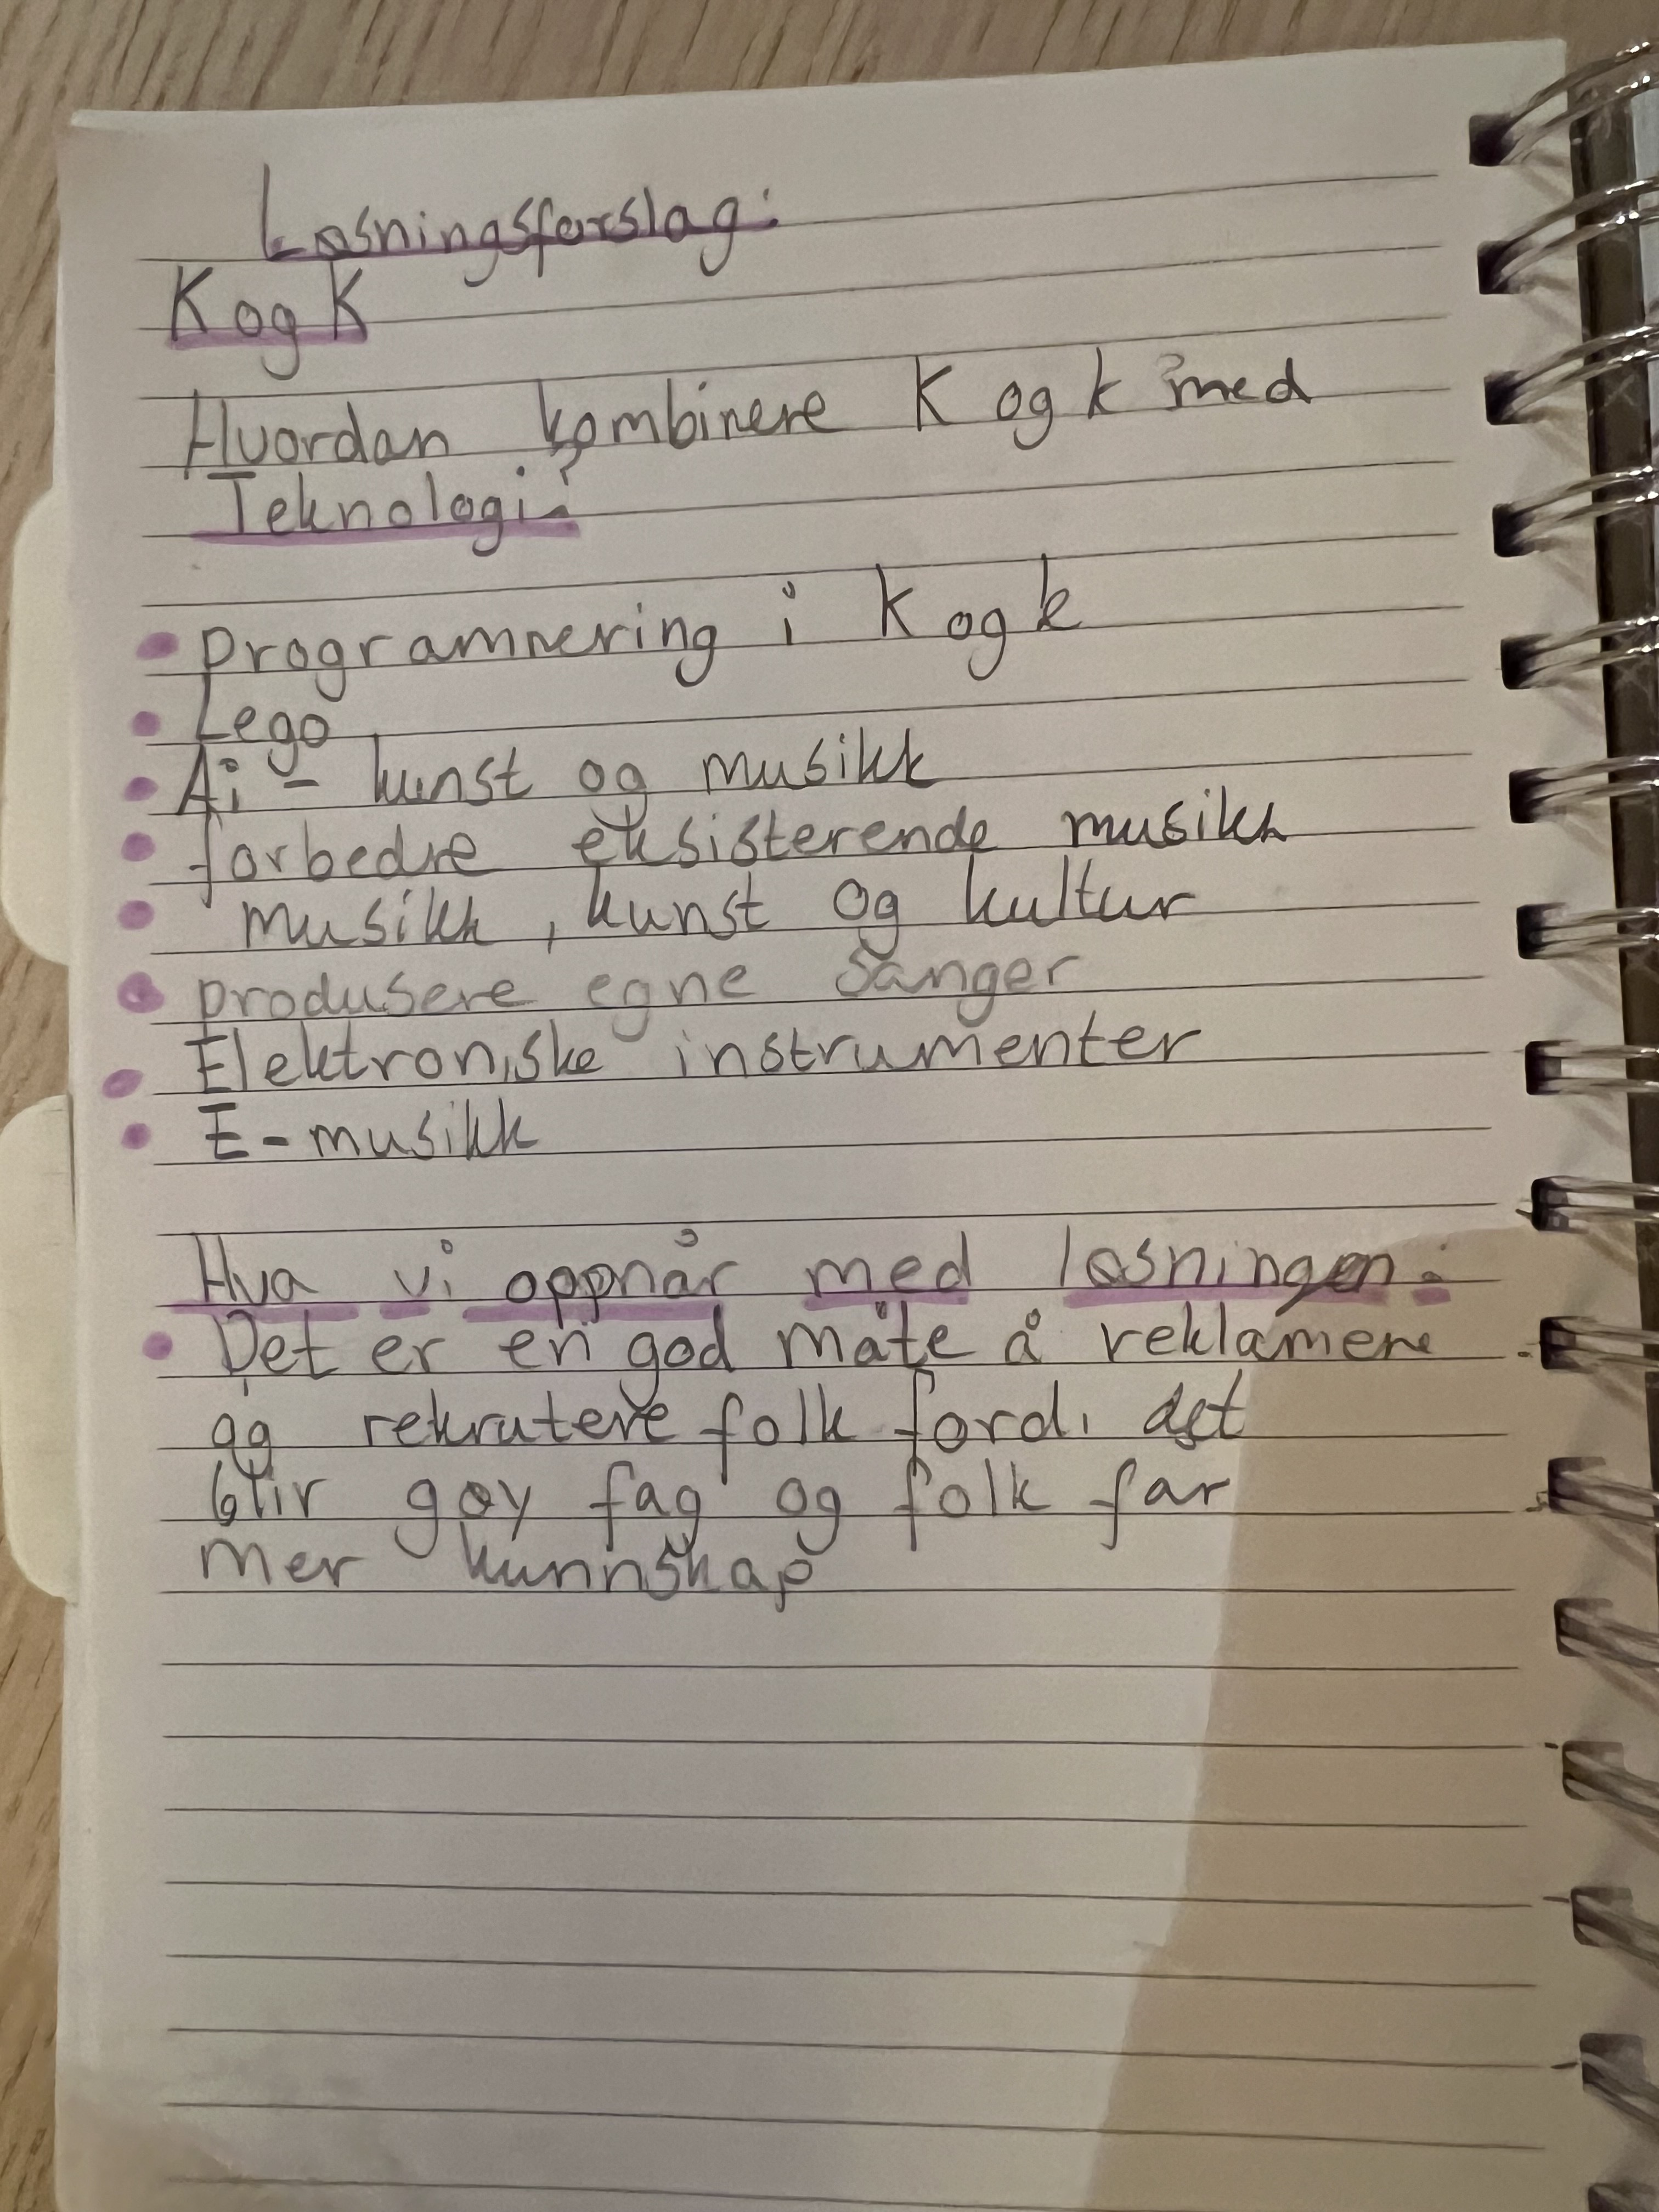 Løsningsforslag:
K og K
Hvordan kombinere K og k med
Teknologi?
• Programmering i K og k
• Lego
• Ai - kunst og musikk
• forbedre eksisterende musikk
• musikk, kunst og kultur
• produsere egne sanger
• Elektroniske instrumenter
• E-musikk
Hva vi oppnår med løsningen:
• Det er en god måte å reklamere
og rekrutere folk fordi det
blir gøy fag og folk får
mer kunnskap